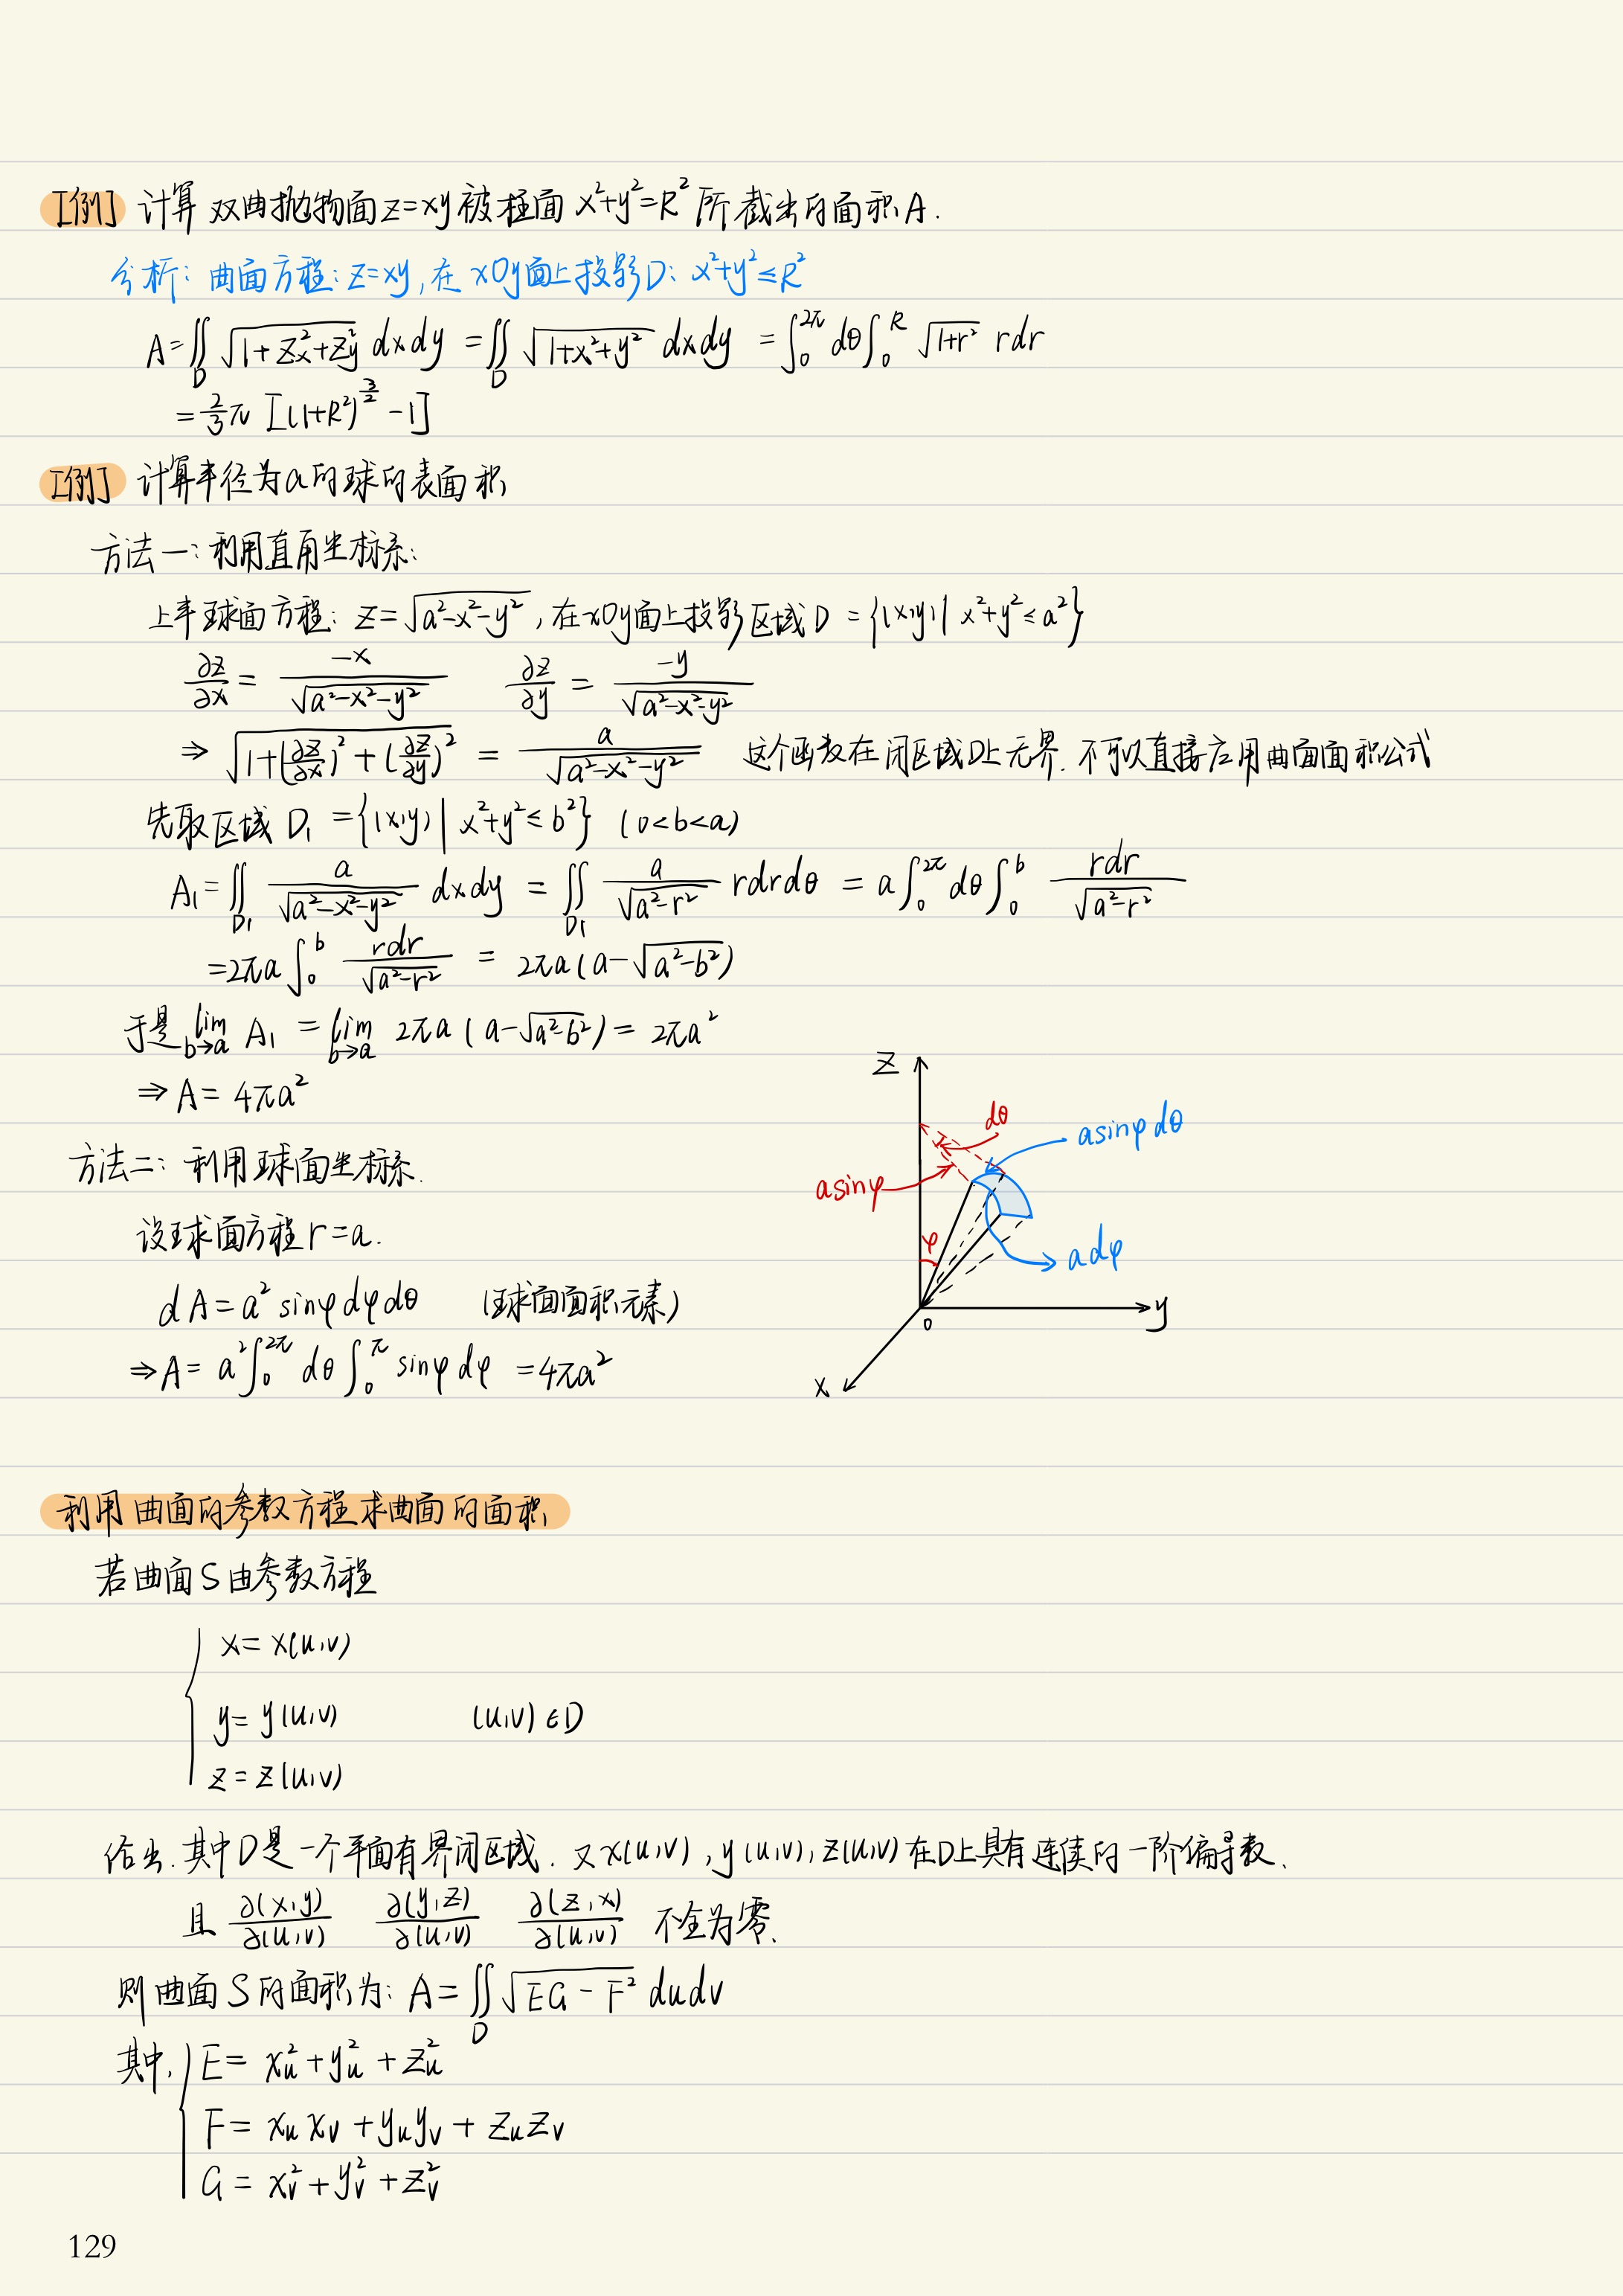 [例] 计算双曲抛物面z=xy被柱面x²+y²=R²所截出的面积A.
分析: 曲面方程: z=xy, 在xOy面上投影D: x²+y²≤R²
A=∬_D √(1+z_x²+z_y²) dxdy = ∬_D √(1+x²+y²) dxdy = ∫_0^{2π} dθ ∫_0^R √(1+r²) rdr
= 2/3 π [(1+R²)^{3/2} -1]
[例] 计算半径为a的球的表面积
方法一: 利用直角坐标系:
上半球面方程: z=√(a²-x²-y²), 在xOy面上投影区域D={(x,y)| x²+y²≤a²}
∂z/∂x = -x/√(a²-x²-y²) ∂z/∂y = -y/√(a²-x²-y²)
⇒ √(1+(∂z/∂x)²+(∂z/∂y)²) = a/√(a²-x²-y²) 这个函数在闭区域D上无界. 不可以直接应用曲面面积公式
先取区域 D₁={(x,y)| x²+y²≤b²} (0<b<a)
A₁=∬_{D₁} a/√(a²-x²-y²) dxdy = ∬_{D₁} a/√(a²-r²) rdrdθ = a∫_0^{2π} dθ ∫_0^b rdr/√(a²-r²)
=2πa ∫_0^b rdr/√(a²-r²) = 2πa(a-√(a²-b²))
于是 lim_{b→a} A₁ = lim_{b→a} 2πa (a-√(a²-b²)) = 2πa²
⇒ A= 4πa²
方法二: 利用球面坐标系.
设球面方程r=a.
dA=a² sinφdφdθ (球面面积元素)
⇒A= a²∫_0^{2π} dθ ∫_0^π sinφdφ =4πa²
z
dθ
asinφdθ
asinφ
φ
adφ
0
y
x
利用曲面的参数方程求曲面的面积
若曲面S由参数方程
x=x(u,v)
y=y(u,v) (u,v)∈D
z=z(u,v)
给出. 其中D是一个平面有界闭区域. 又x(u,v), y(u,v), z(u,v)在D上具有连续的一阶偏导数.
且 ∂(x,y)/∂(u,v) ∂(y,z)/∂(u,v) ∂(z,x)/∂(u,v) 不全为零.
则曲面S的面积为: A=∬_D √(EG-F²) dudv
其中, E= x_u²+y_u²+z_u²
F= x_u x_v + y_u y_v + z_u z_v
G= x_v²+y_v²+z_v²
129